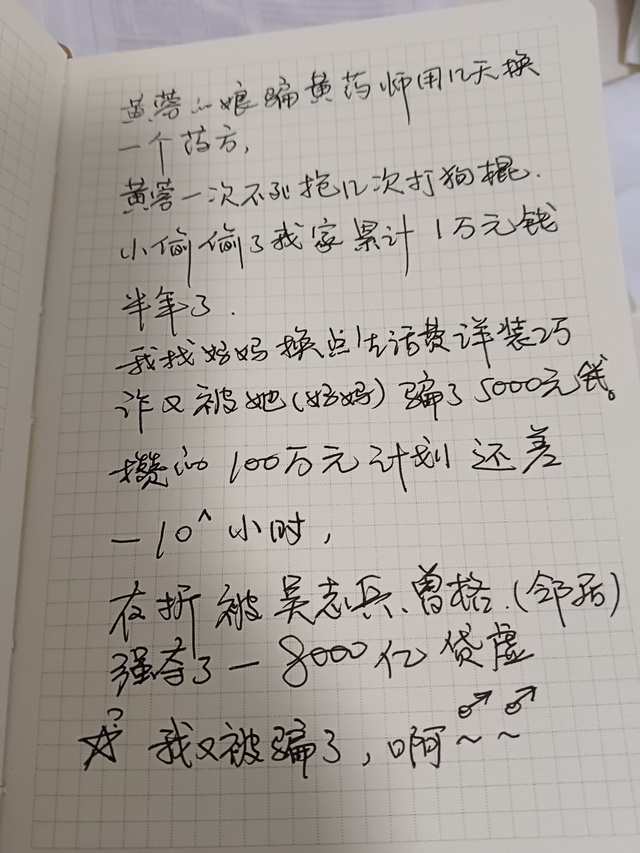 黄蓉的娘骗黄药师用12天换
一个药方,
黄蓉一次不到挖12次打狗棍.
小偷偷了我家累计1万元钱
半年了.
我找妈妈换点生活费详装巧
诈又被她(妈妈)骗了5000元钱。
攒的100万元计划还差
一10^小时,
在折被吴志兵、曾格.(邻居)
强夺了一8000亿贷虚
☆? 我又被骗了,啊~♂~♂